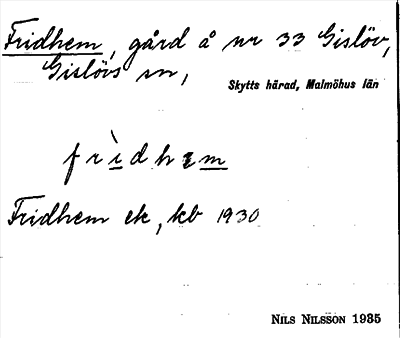 Fridhem, gård å nr 33 Gislöv,
Gislövs sn,
Skytts härad, Malmöhus län
frìdhem
Fridhem ek, kb 1930
NILS NILSSON 1935